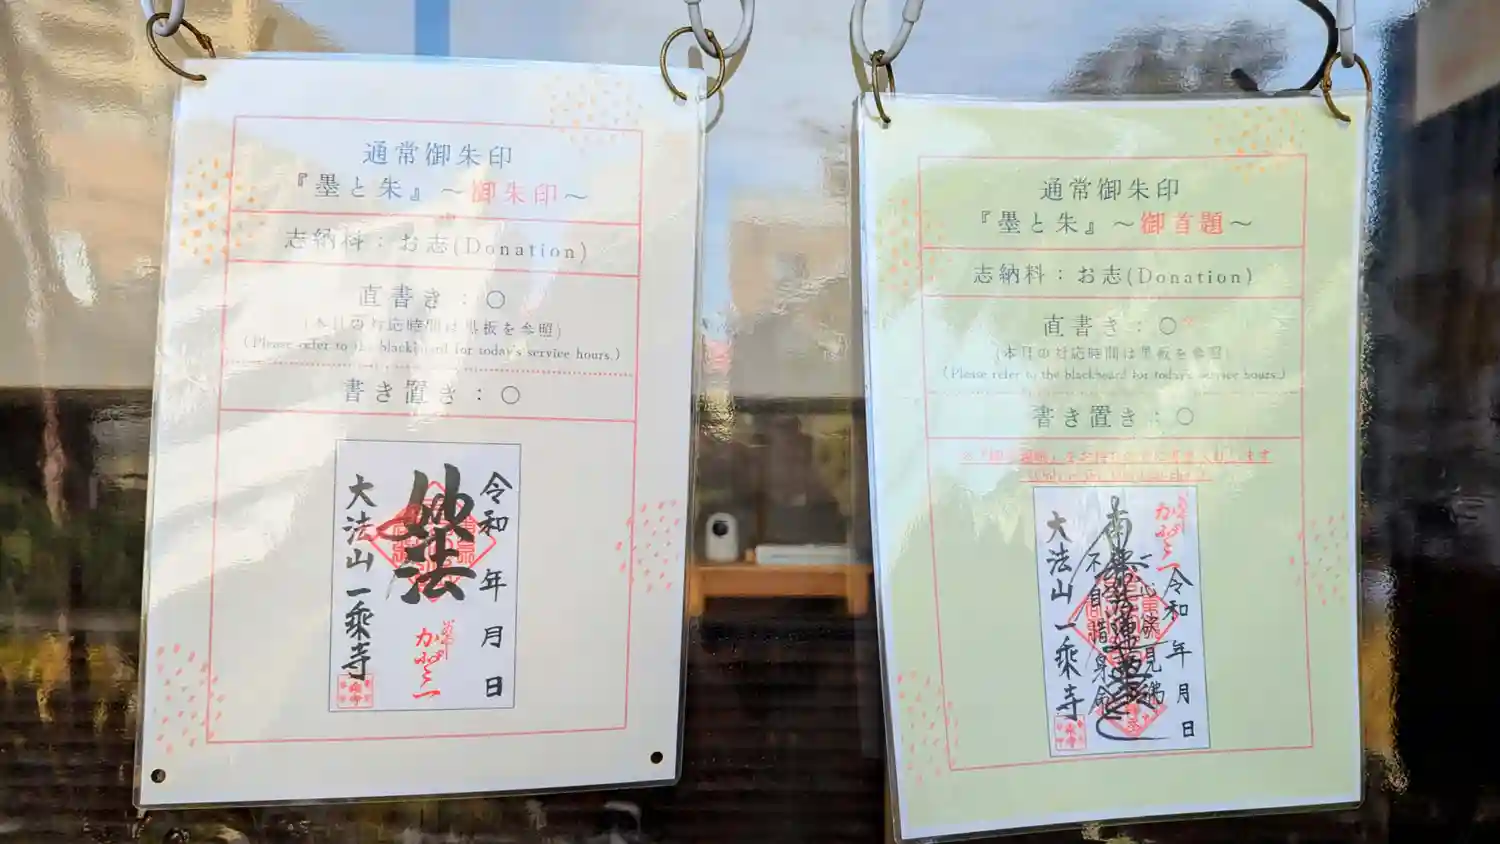 通常御朱印
『墨と朱』~御朱印~
志納料：お志(Donation)
直書き：○
(本日の対応時間は黒板を参照)
(Please refer to the blackboard for today's service hours.)
書き置き：○
令和 年 月 日
妙法
大法山 一乘寺
通常御朱印
『墨と朱』~御首題~
志納料：お志(Donation)
直書き：○
(本日の対応時間は黒板を参照)
(Please refer to the blackboard for today's service hours.)
書き置き：○
令和 年 月 日
一心欲見佛
不自惜身命
大法山 一乘寺